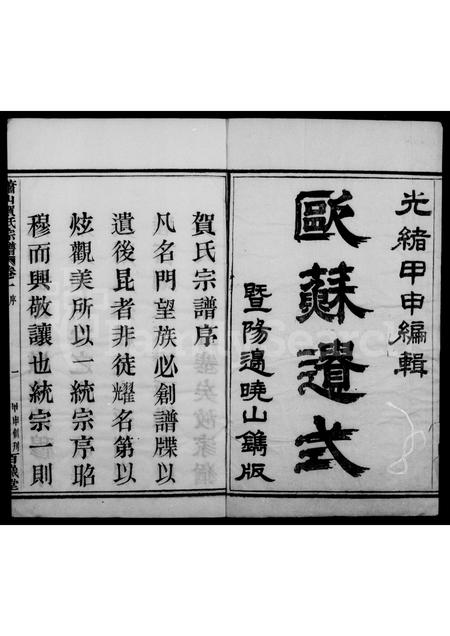 光緒甲申編輯
歐蘇遺式
暨陽邊曉山鐫版
賀氏宗譜序
凡名門望族必創譜牒以
遺後昆者非徒耀名第以
炫觀美所以一統宗序昭
穆而興敬讓也統宗一則
蕭山賀氏宗譜卷一 序 一 甲申輯刊百祿堂